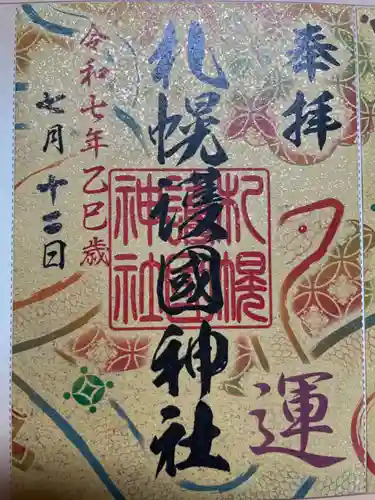 奉拝
運
札幌護國神社
札幌護國神社
令和七年乙巳歳
七月十二日